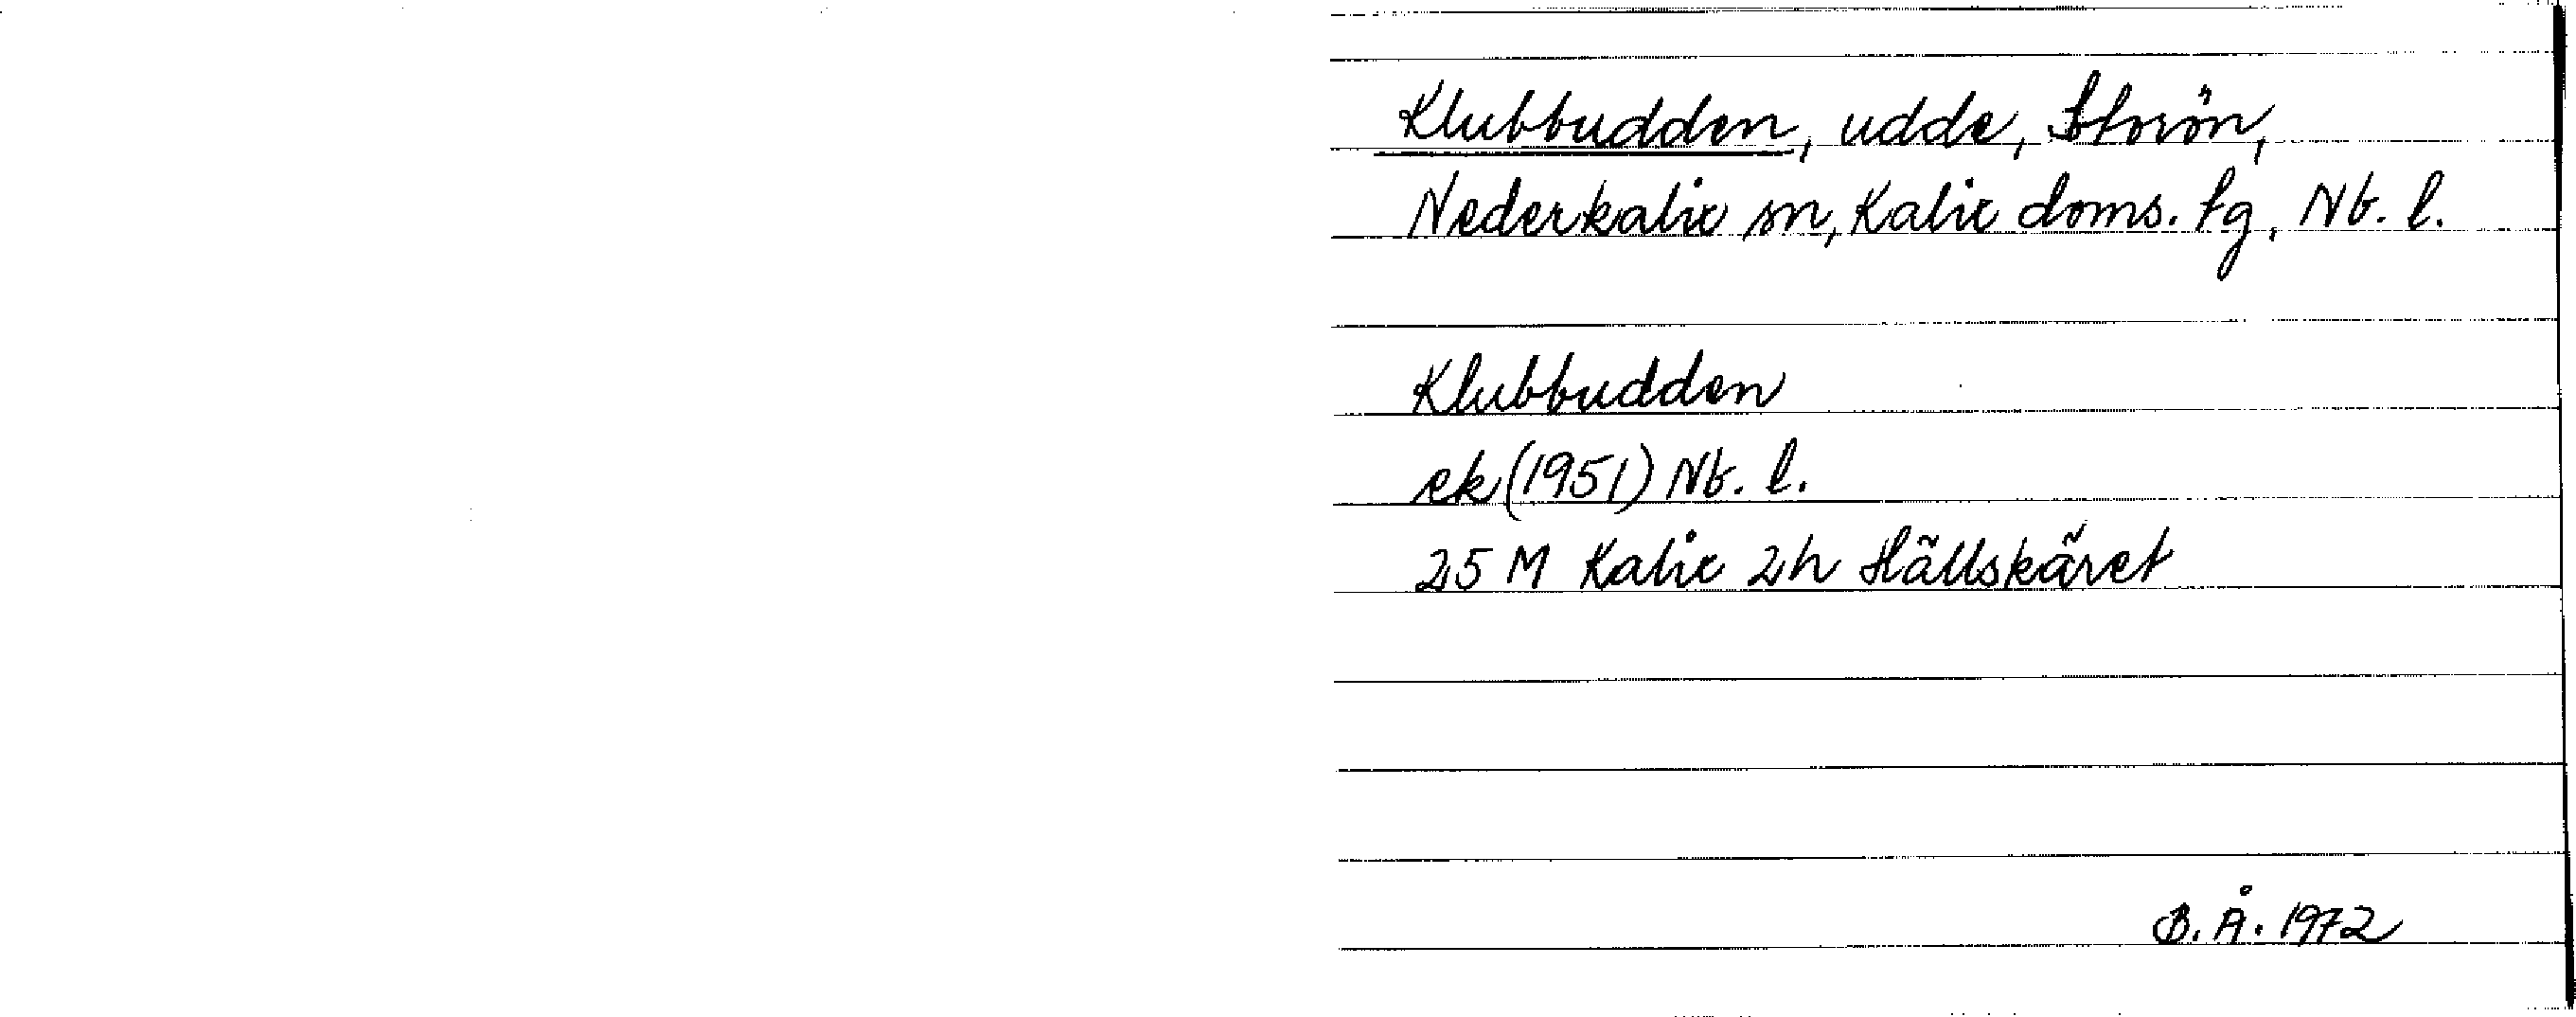 Klubbudden, udde, Storön,
Nederkalix sn, Kalix doms. tg, Nb. l.
Klubbudden
ek (1951) Nb. l.
25 M Kalix 2h Hällskäret
B. Å. 1972